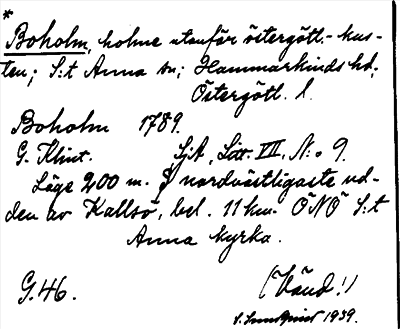 *
Boholm, holme utanför östergött.-kus-
ten; S:t Anna sn; Hammarkinds hd;
Östergötl. l.
Boholm 1789.
G. Klint. SjA, Litt. VII, N:o 9.
Läge 200 m. S nordvästligaste ud-
den av Kallsö, bel. 11 km. ÖNÖ S:t
Anna kyrka.
G.46. (Vänd!)
1939.